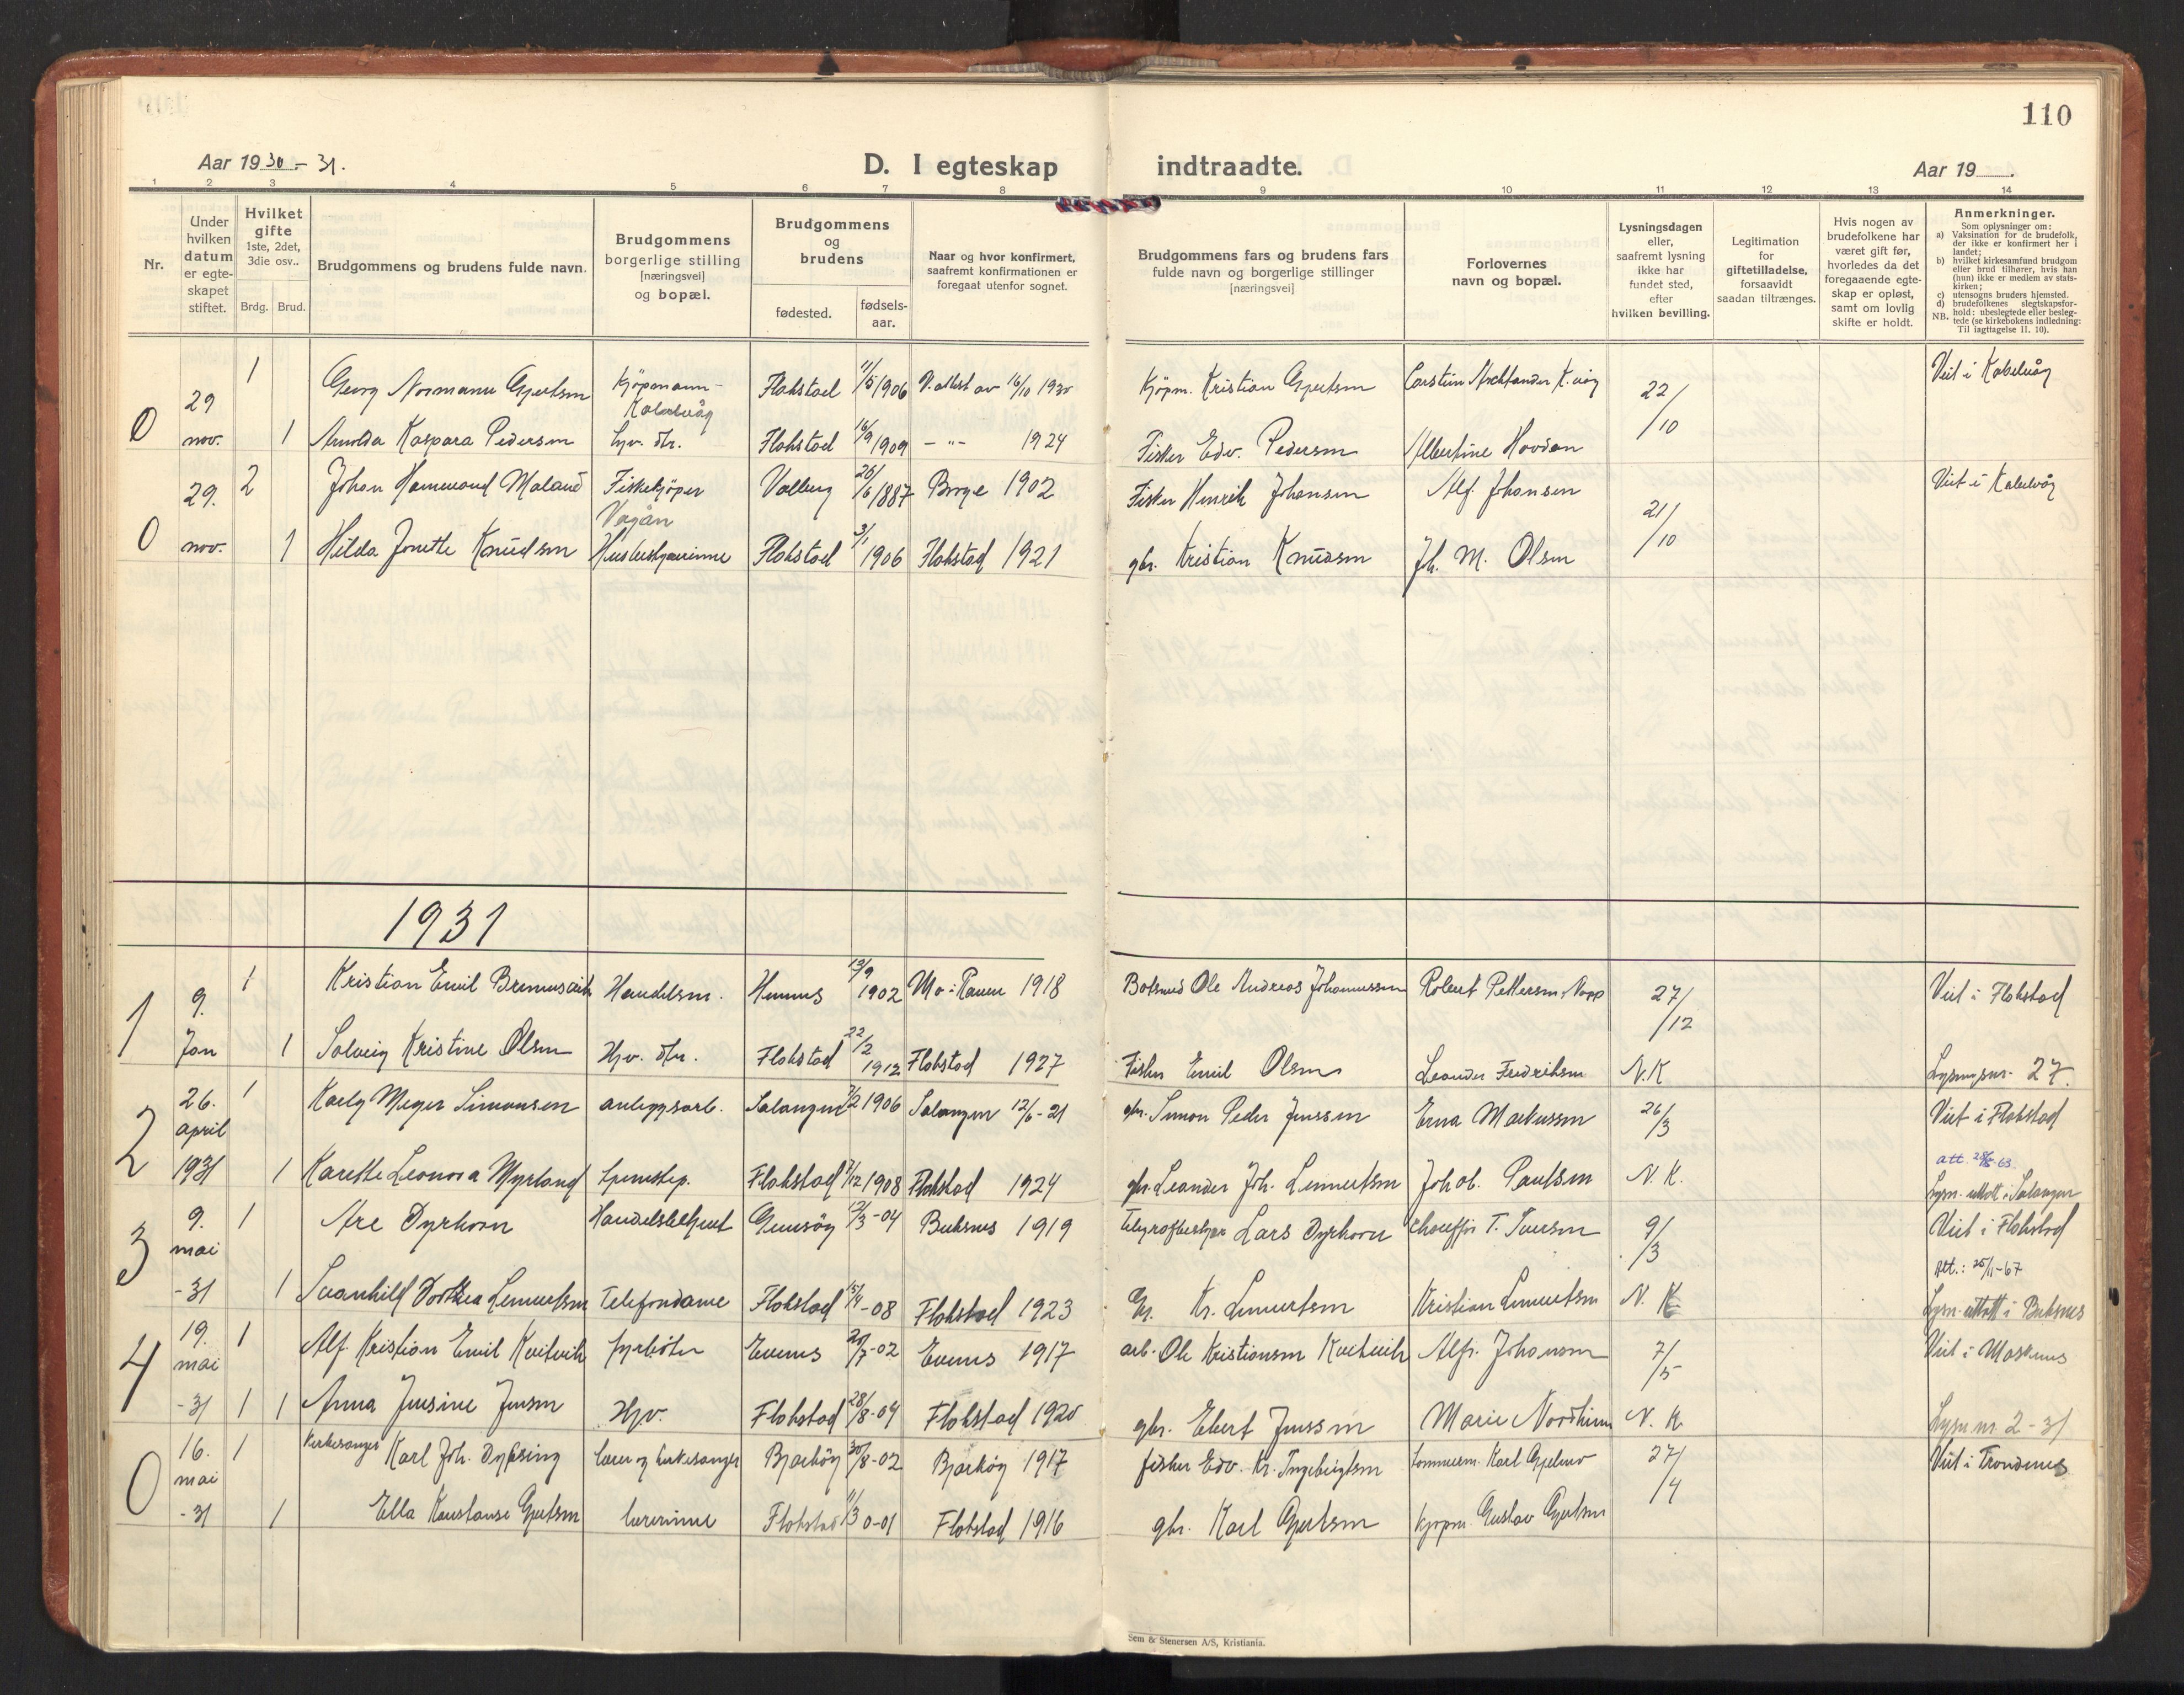 110
Aar 1930 - 31.
D. I egteskap indtraadte.
Aar 19 .
1 2 3 4 5 6 7 8 9 10 11 12 13 14
Nr.
Under
hvilken
datum
er egte-
skapet
stiftet.
Hvilket
gifte
1ste, 2det,
3die osv..
Brdg. Brud.
Brudgommens og brudens fulde navn.
Brudgommens
borgerlige stilling
[næringsvei]
og bopæl.
Brudgommens
og
brudens
fødested.
fødsels-
aar.
Naar og hvor konfirmert,
saafremt konfirmationen er
foregaat utenfor sognet.
Brudgommens fars og brudens fars
fulde navn og borgerlige stillinger
[næringsvei]
Forlovernes
navn og bopæl.
Lysningsdagen
eller,
saafremt lysning
ikke har
fundet sted,
efter
hvilken bevilling.
Legitimation
for
giftetilladelse,
forsaavidt
saadan tiltrænges.
Hvis nogen av
brudefolkene har
været gift før,
hvorledes da det
foregaaende egte-
skap er opløst,
samt om lovlig
skifte er holdt.
Anmerkninger.
Som oplysninger om:
a) Vaksination for de brudefolk,
der ikke er konfirmert her i
landet;
b) hvilket kirkesamfund brudgom
eller brud tilhører, hvis han
(hun) ikke er medlem av stats-
kirken;
c) utensogns bruders hjemsted.
d) brudefolkenes slegtskapsfor-
hold: ubeslegtede eller besleg-
NB. tede (se kirkebokens indledning:
Til iagttagelse II. 10).
0 29 nov. 1 Georg Normann Gjertsen Kjöpmann - Kabelvåg Flakstad 11/5 1906 V. attest av 16/10 1930 Kjöpm. Kristian Gjertsen Carstein K.våg 22/10 Viet i Kabelvåg
1 Arnolda Kaspara Pedersen Hjv. dtr. Flakstad 16/9 1909 - " - 1924 Fisker Edv. Pedersen Albertine Hovdan
0 29. nov. 2 Johan Hammond Maland Fiskekjöper Vågan Valberg 26/6 1887 Borge 1902 Fisker Henrik Johansen Alf. Johansen 21/10 Viet i Kabelvåg
1 Hilda Jonette Knudsen Husbestyrerinne Flakstad 3/1 1906 Flakstad 1921 gbr. Kristian Knudsen Joh. M. Olsen
1931
1 9. Jan 1 Kristian Emil Handelsm. Hemnes 13/9 1902 Mo i Ranen 1918 Ole Andreas Johannessen Robert Pettersen, Napp 27/12 Viet i Flakstad
1 Solveig Kristine Olsen Hjv. dtr. Flakstad 22/2 1912 Flakstad 1927 Fisker Emil Olsen Leander Fredriksen N.K Lysningsnr. 27.
2 26. april 1931 1 Karly Meyer Simonsen anleggsarb. Salangen 7/2 1906 Salangen 12/6-21 gbr. Simon Peder Jenssen Erna Markussen 26/3 Viet i Flakstad
1 Karette Leonora Myrland Flakstad 7/12 1908 Flakstad 1924 gbr. Leander Joh. Lennertsen Johab. Paulsen N. K. att. 28/5-63. Lysn. attest i Salangen
3 9. mai -31 1 Are Dyrhorn Handelsbetjent Gimsöy 12/3 -04 Buksnes 1919 Telegrafbestyrer Lars Dyrhorn Chauffør T. Iversen 9/3 Viet i Flakstad
1 Svanhild Dorthea Lennertsen Telefondame Flakstad 15/4 -08 Flakstad 1923 Gbr. Kr. Lennertsen Kristian Lennertsen N. K Att.: 25/11-67 Lysn. attest i Buksnes
4 19. mai -31 1 Alf. Kristian Emil Kvitvik fyrböter Evenes 20/7 -02 Evenes 1917 arb. Ole Kristiansen Kvitvik Alfr. Johansen 7/5 Viet i Moskenes
1 1 Anna Jensine Jensen Hjv. Flakstad 28/8 -04 Flakstad 1920 gbr. Ebert Jenssen Marie Nordheim N. K Lysn nr. 2 - 31
0 16. mai -31 1 Kirkesanger Karl Joh. lærer og kirkesanger Bjarköy 30/8 -02 Bjarköy 1917 fisker Edv. Kr. Ingebrigtsen tömmerm. Karl 27/4 Viet i Trondenes
1 Ella Konstanse Gjertsen lærerinne Flakstad 11/3 0-01 Flakstad 1916 gbr. Karl Gjertsen kjöpm. Gustav Gjertsen
Sem & Stenersen A/S, Kristiania.